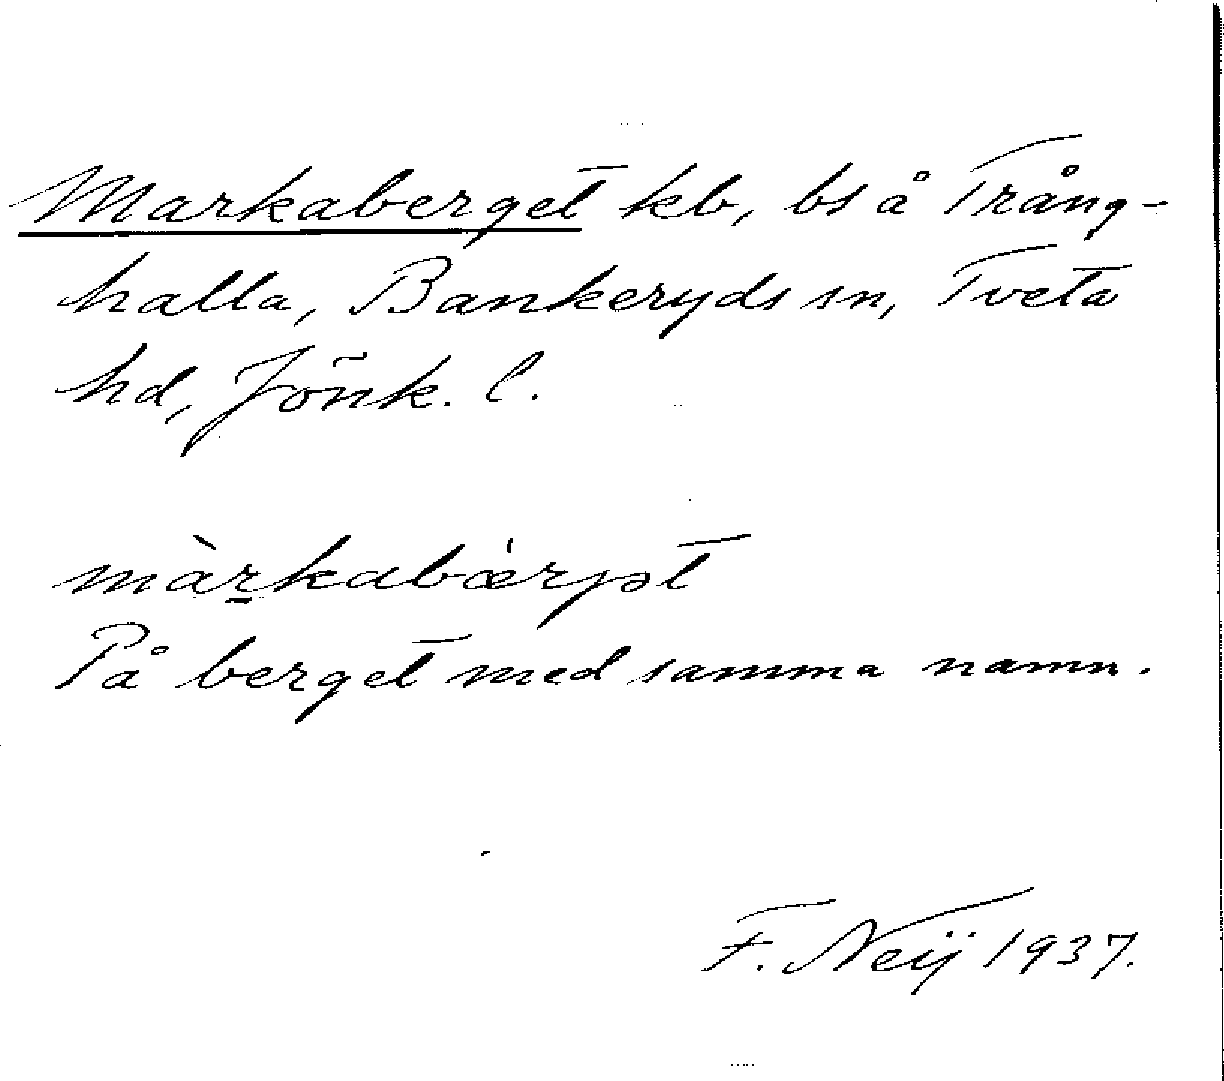 Markaberget kb, bs å Trång-
halla, Bankeryds sn, Tveta
hd, Jönk. l.
màr̠kabæ̀rjət
På berget med samma namn.
F. Neij 1937.